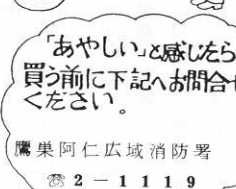 「あやしい」と感じたら
買う前に下記へお問合せ
ください。
鷹巣阿仁広域消防署
☎2-1119